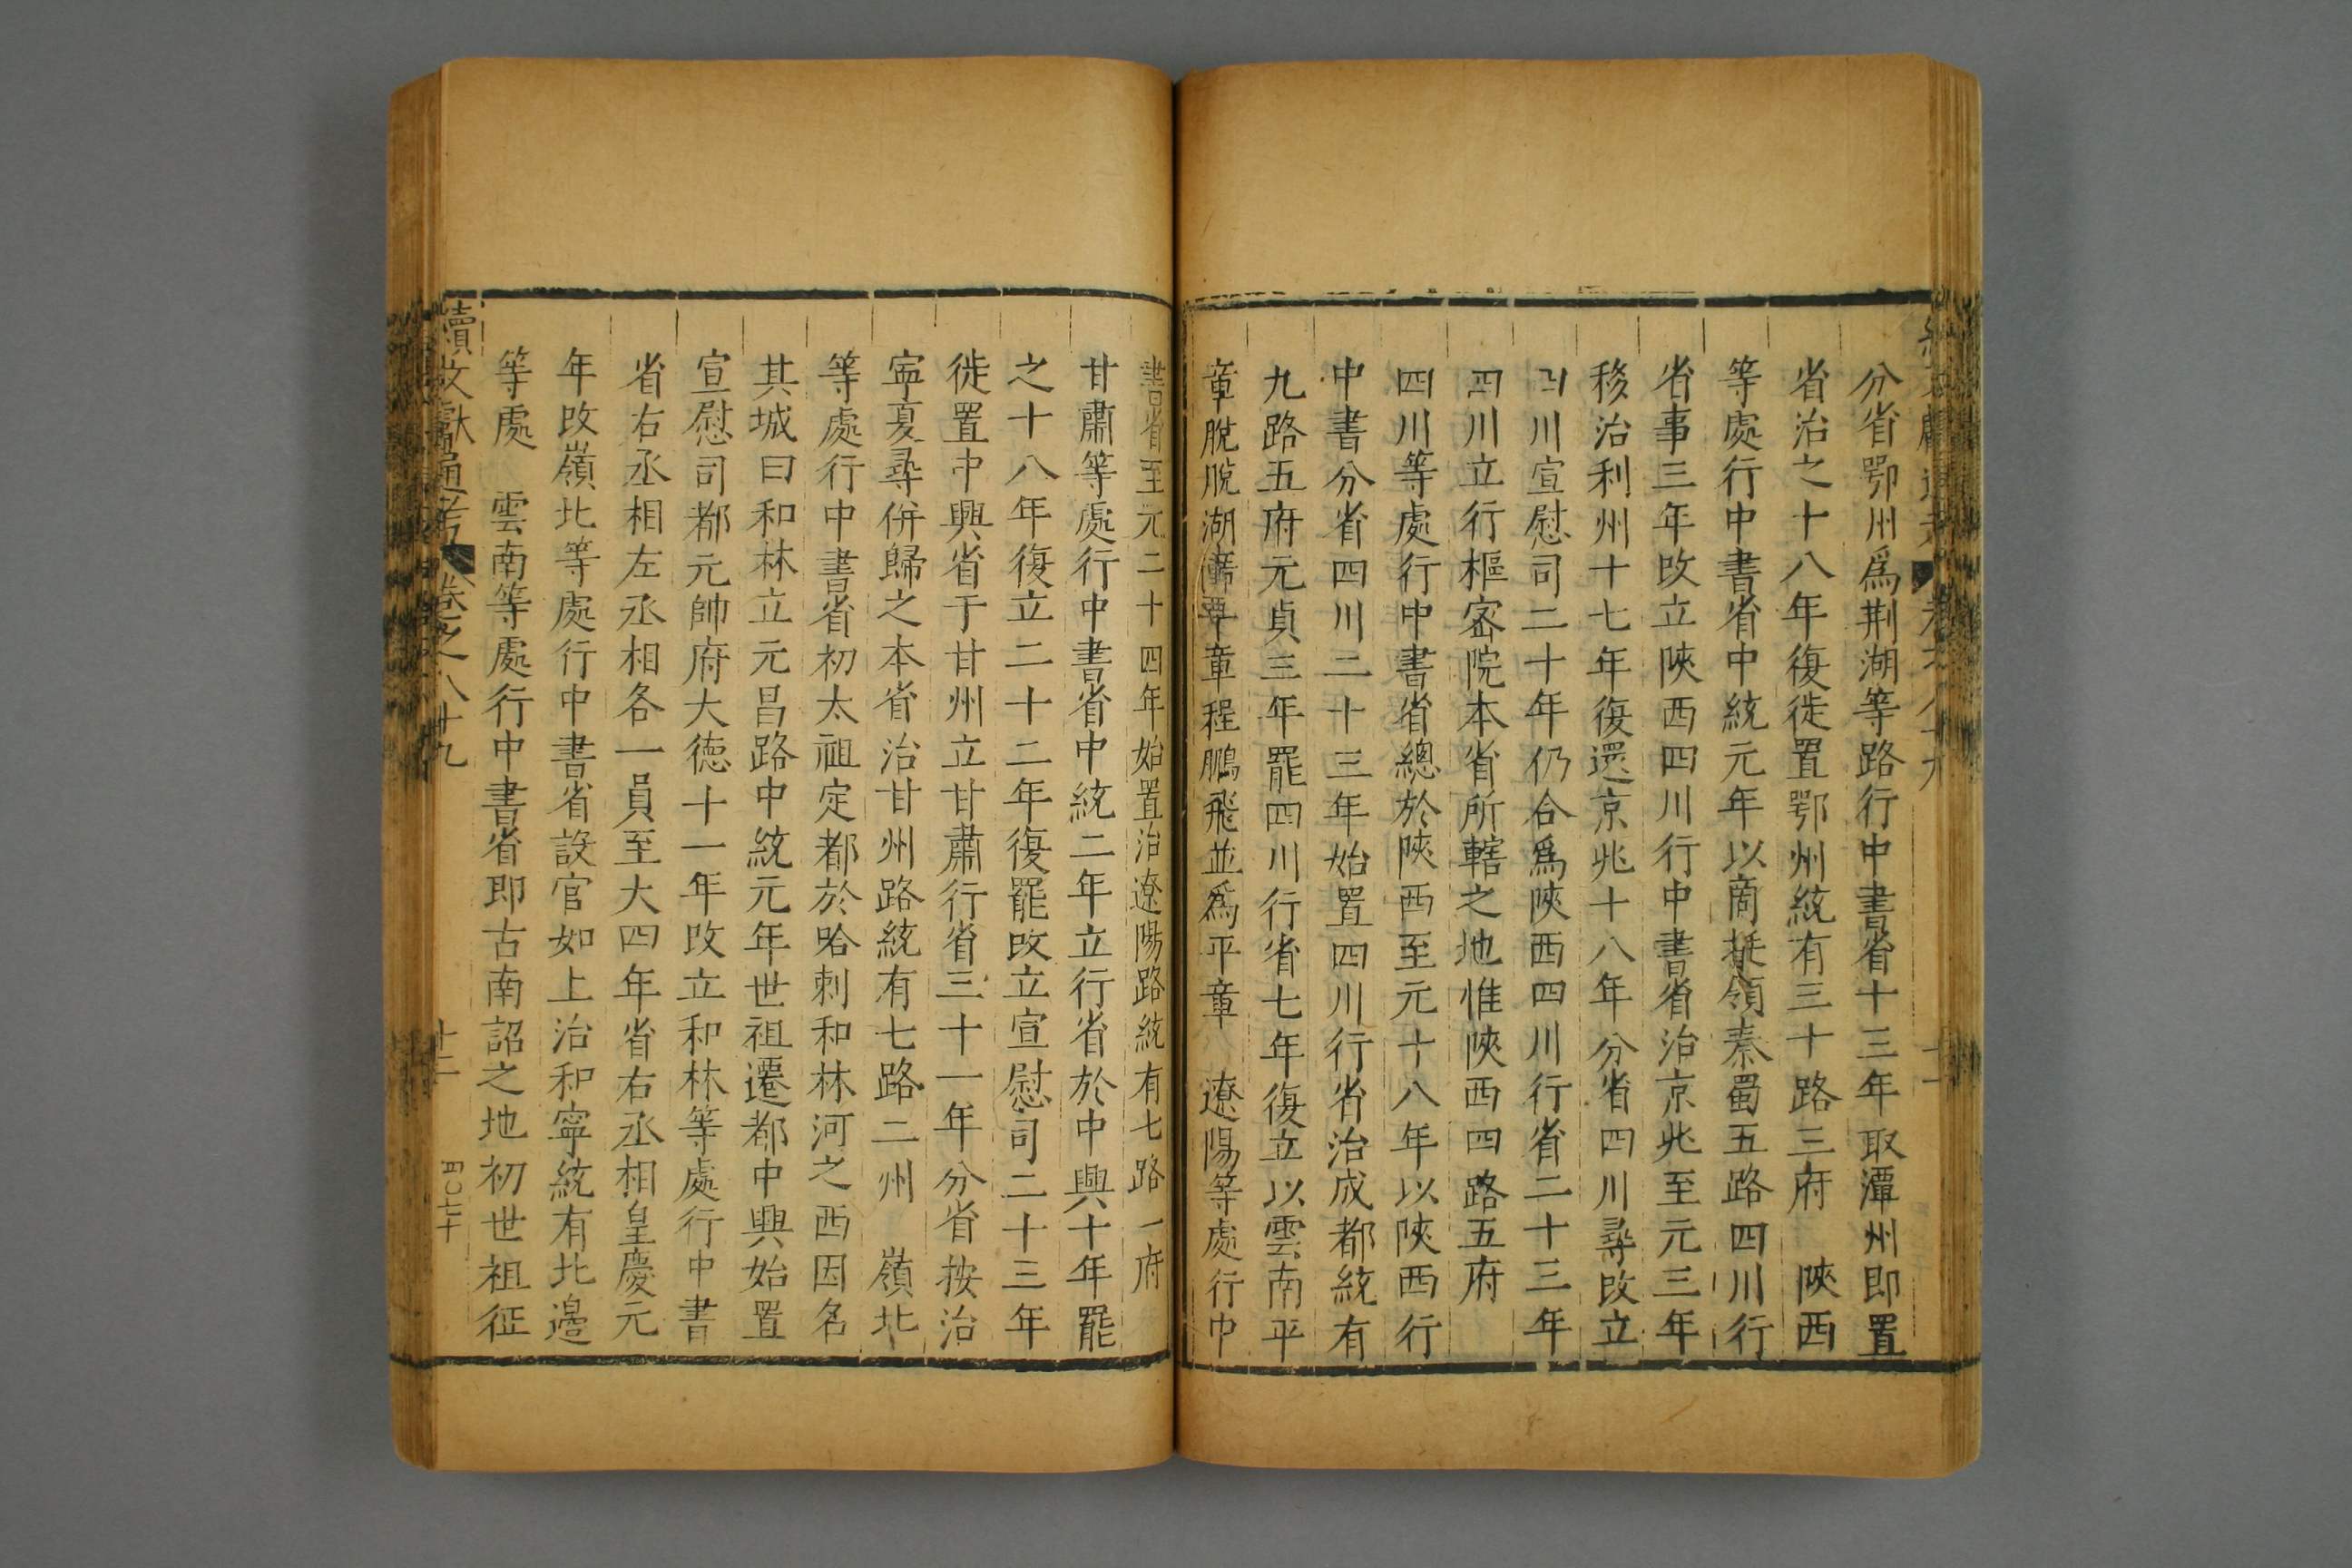 分省鄂州爲荆湖等路行中書省十三年取潭州即置
省治之十八年復徙置鄂州統有三十路三府　陝西
等處行中書省中統元年以商挺領秦蜀五路四川行
省事三年改立陝西四川行中書省治京兆至元三年
移治利州十七年復還京兆十八年分省四川尋改立
四川宣慰司二十年仍合爲陝西四川行省二十三年
四川立行樞密院本省所轄之地惟陝西四路五府
四川等處行中書省總於陝西至元十八年以陝西行
中書分省四川二十三年始置四川行省治成都統有
九路五府元貞三年罷四川行省七年復立以雲南平
章脫脫湖廣平章程鵬飛並爲平章　遼陽等處行中
書省至元二十四年始置治遼陽路統有七路一府
甘肅等處行中書省中統二年立行省於中興十年罷
之十八年復立二十二年復罷改立宣慰司二十三年
徙置中興省于甘州立甘肅行省三十一年分省按治
寧夏尋併歸之本省治甘州路統有七路二州　嶺北
等處行中書省初太祖定都於哈剌和林河之西因名
其城曰和林立元昌路中統元年世祖遷都中興始置
宣慰司都元帥府大德十一年改立和林等處行中書
省右丞相左丞相各一員至大四年省右丞相皇慶元
年改嶺北等處行中書省設官如上治和寧統有北邊
等處　雲南等處行中書省即古南詔之地初世祖征
續文獻通考　卷之八十九　十二